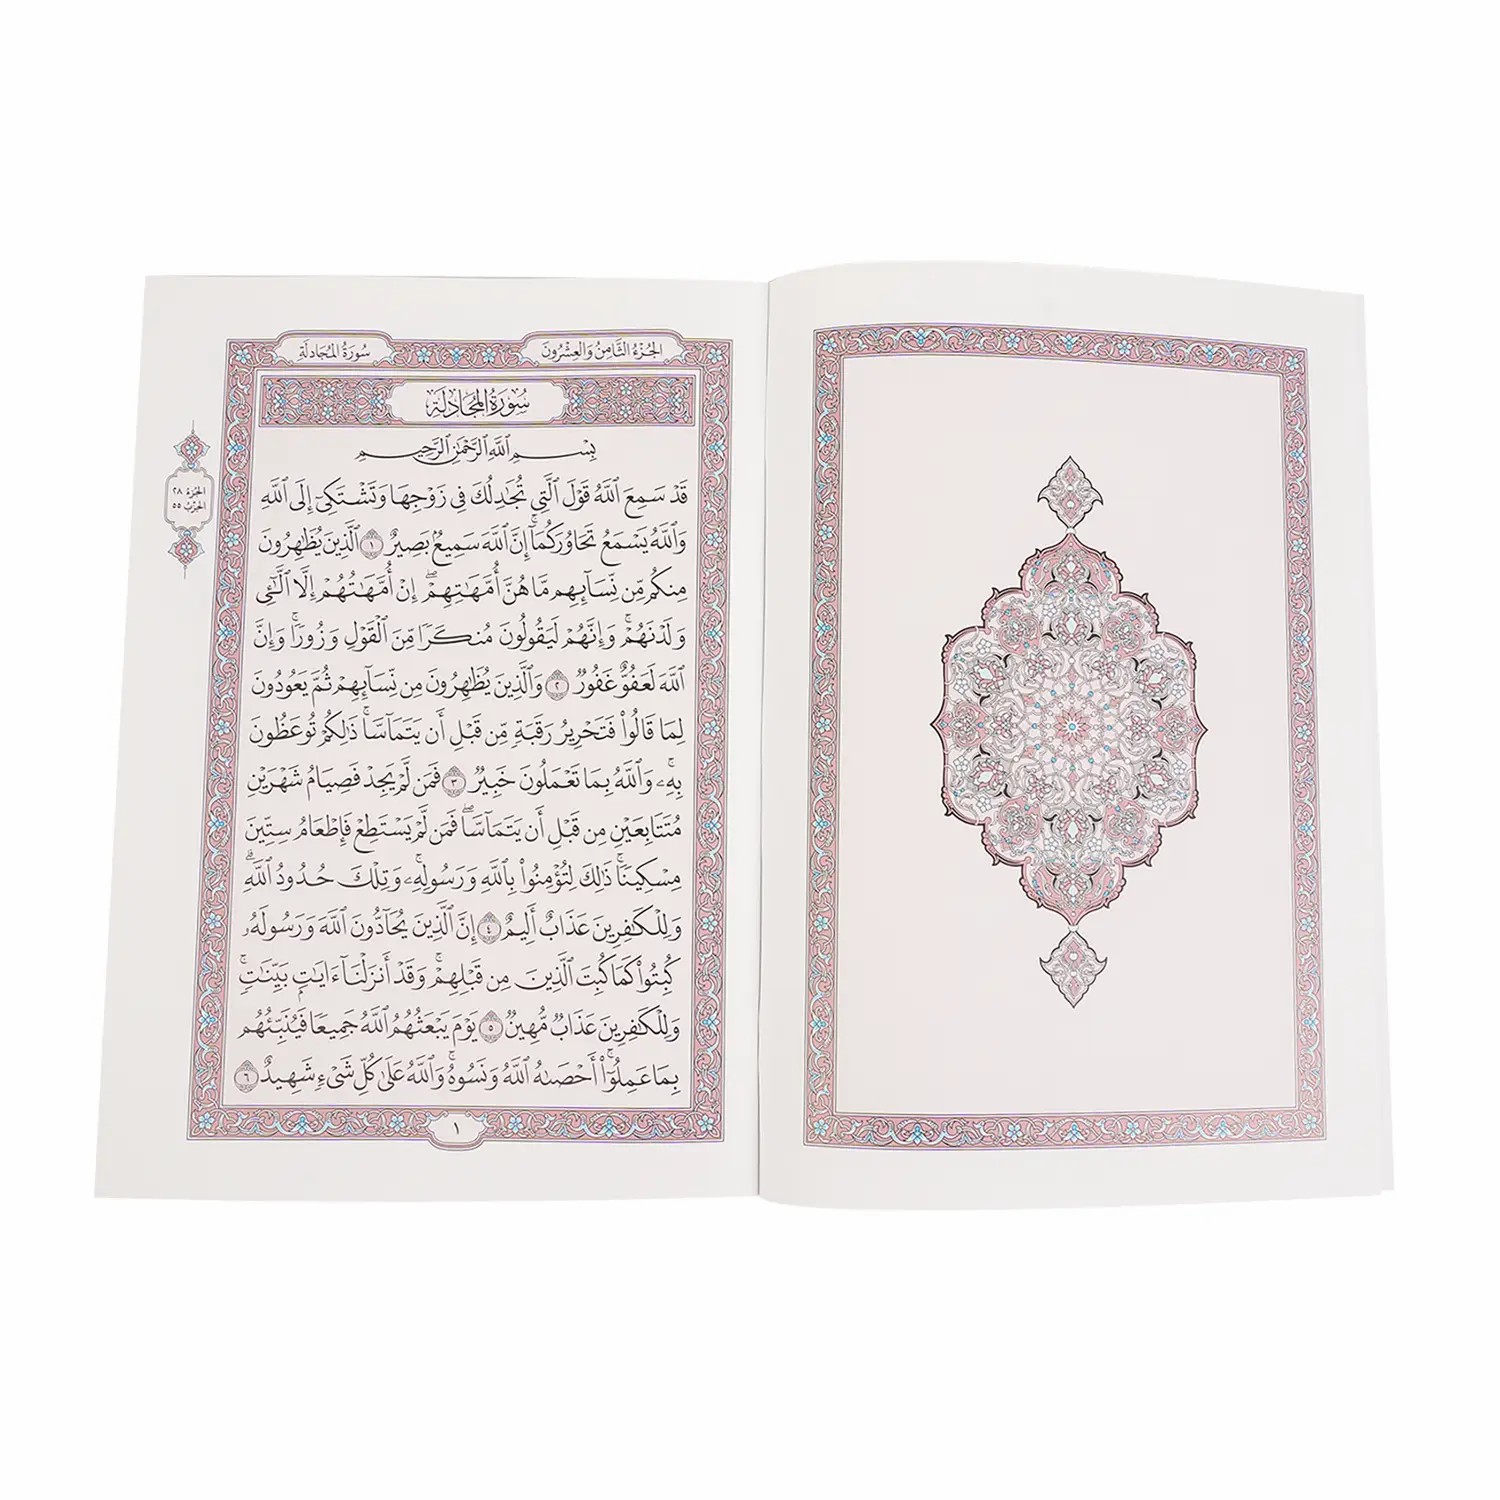 الجُزءُ الثَّامِنُ وَالعِشْرُونَ
سُورَةُ المُجَادلَةِ
سُورَةُ المُجَادلَةِ
بِسْمِ ٱللَّهِ ٱلرَّحْمَٰنِ ٱلرَّحِيمِ
قَدْ سَمِعَ ٱللَّهُ قَوْلَ ٱلَّتِي تُجَٰدِلُكَ فِي زَوْجِهَا وَتَشْتَكِيٓ إِلَى ٱللَّهِ
وَٱللَّهُ يَسْمَعُ تَحَاوُرَكُمَآۚ إِنَّ ٱللَّهَ سَمِيعُۢ بَصِيرٌ ١ ٱلَّذِينَ يُظَٰهِرُونَ
مِنكُم مِّن نِّسَآئِهِم مَّا هُنَّ أُمَّهَٰتِهِمْۖ إِنْ أُمَّهَٰتُهُمْ إِلَّا ٱلَّٰٓـِٔي
وَلَدْنَهُمْۚ وَإِنَّهُمْ لَيَقُولُونَ مُنكَرًا مِّنَ ٱلْقَوْلِ وَزُورًاۚ وَإِنَّ
ٱللَّهَ لَعَفُوٌّ غَفُورٌ ٢ وَٱلَّذِينَ يُظَٰهِرُونَ مِن نِّسَآئِهِمْ ثُمَّ يَعُودُونَ
لِمَا قَالُوا۟ فَتَحْرِيرُ رَقَبَةٍ مِّن قَبْلِ أَن يَتَمَآسَّاۚ ذَٰلِكُمْ تُوعَظُونَ
بِهِۦۚ وَٱللَّهُ بِمَا تَعْمَلُونَ خَبِيرٌ ٣ فَمَن لَّمْ يَجِدْ فَصِيَامُ شَهْرَيْنِ
مُتَتَابِعَيْنِ مِن قَبْلِ أَن يَتَمَآسَّاۖ فَمَن لَّمْ يَسْتَطِعْ فَإِطْعَامُ سِتِّينَ
مِسْكِينًاۚ ذَٰلِكَ لِتُؤْمِنُوا۟ بِٱللَّهِ وَرَسُولِهِۦۚ وَتِلْكَ حُدُودُ ٱللَّهِۗ
وَلِلْكَٰفِرِينَ عَذَابٌ أَلِيمٌ ٤ إِنَّ ٱلَّذِينَ يُحَآدُّونَ ٱللَّهَ وَرَسُولَهُۥ
كُبِتُوا۟ كَمَا كُبِتَ ٱلَّذِينَ مِن قَبْلِهِمْۚ وَقَدْ أَنزَلْنَآ ءَايَٰتٍۭ بَيِّنَٰتٍۚ
وَلِلْكَٰفِرِينَ عَذَابٌ مُّهِينٌ ٥ يَوْمَ يَبْعَثُهُمُ ٱللَّهُ جَمِيعًا فَيُنَبِّئُهُم
بِمَا عَمِلُوٓا۟ۚ أَحْصَىٰهُ ٱللَّهُ وَنَسُوهُۚ وَٱللَّهُ عَلَىٰ كُلِّ شَيْءٍ شَهِيدٌ ٦
١
الجُزءُ ٢٨
الحِزْبُ ٥٥